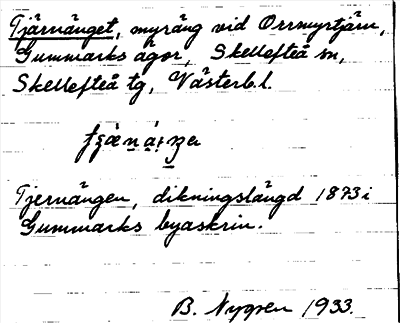 Tjärnänget, myräng vid Orrmyrtjärn,
Gummarks ägor, Skellefteå sn,
Skellefteå tg, Västerb.l.
Tjernängen, dikningslängd 1873 i
Gummarks byaskrin.
B. Nygren 1933.